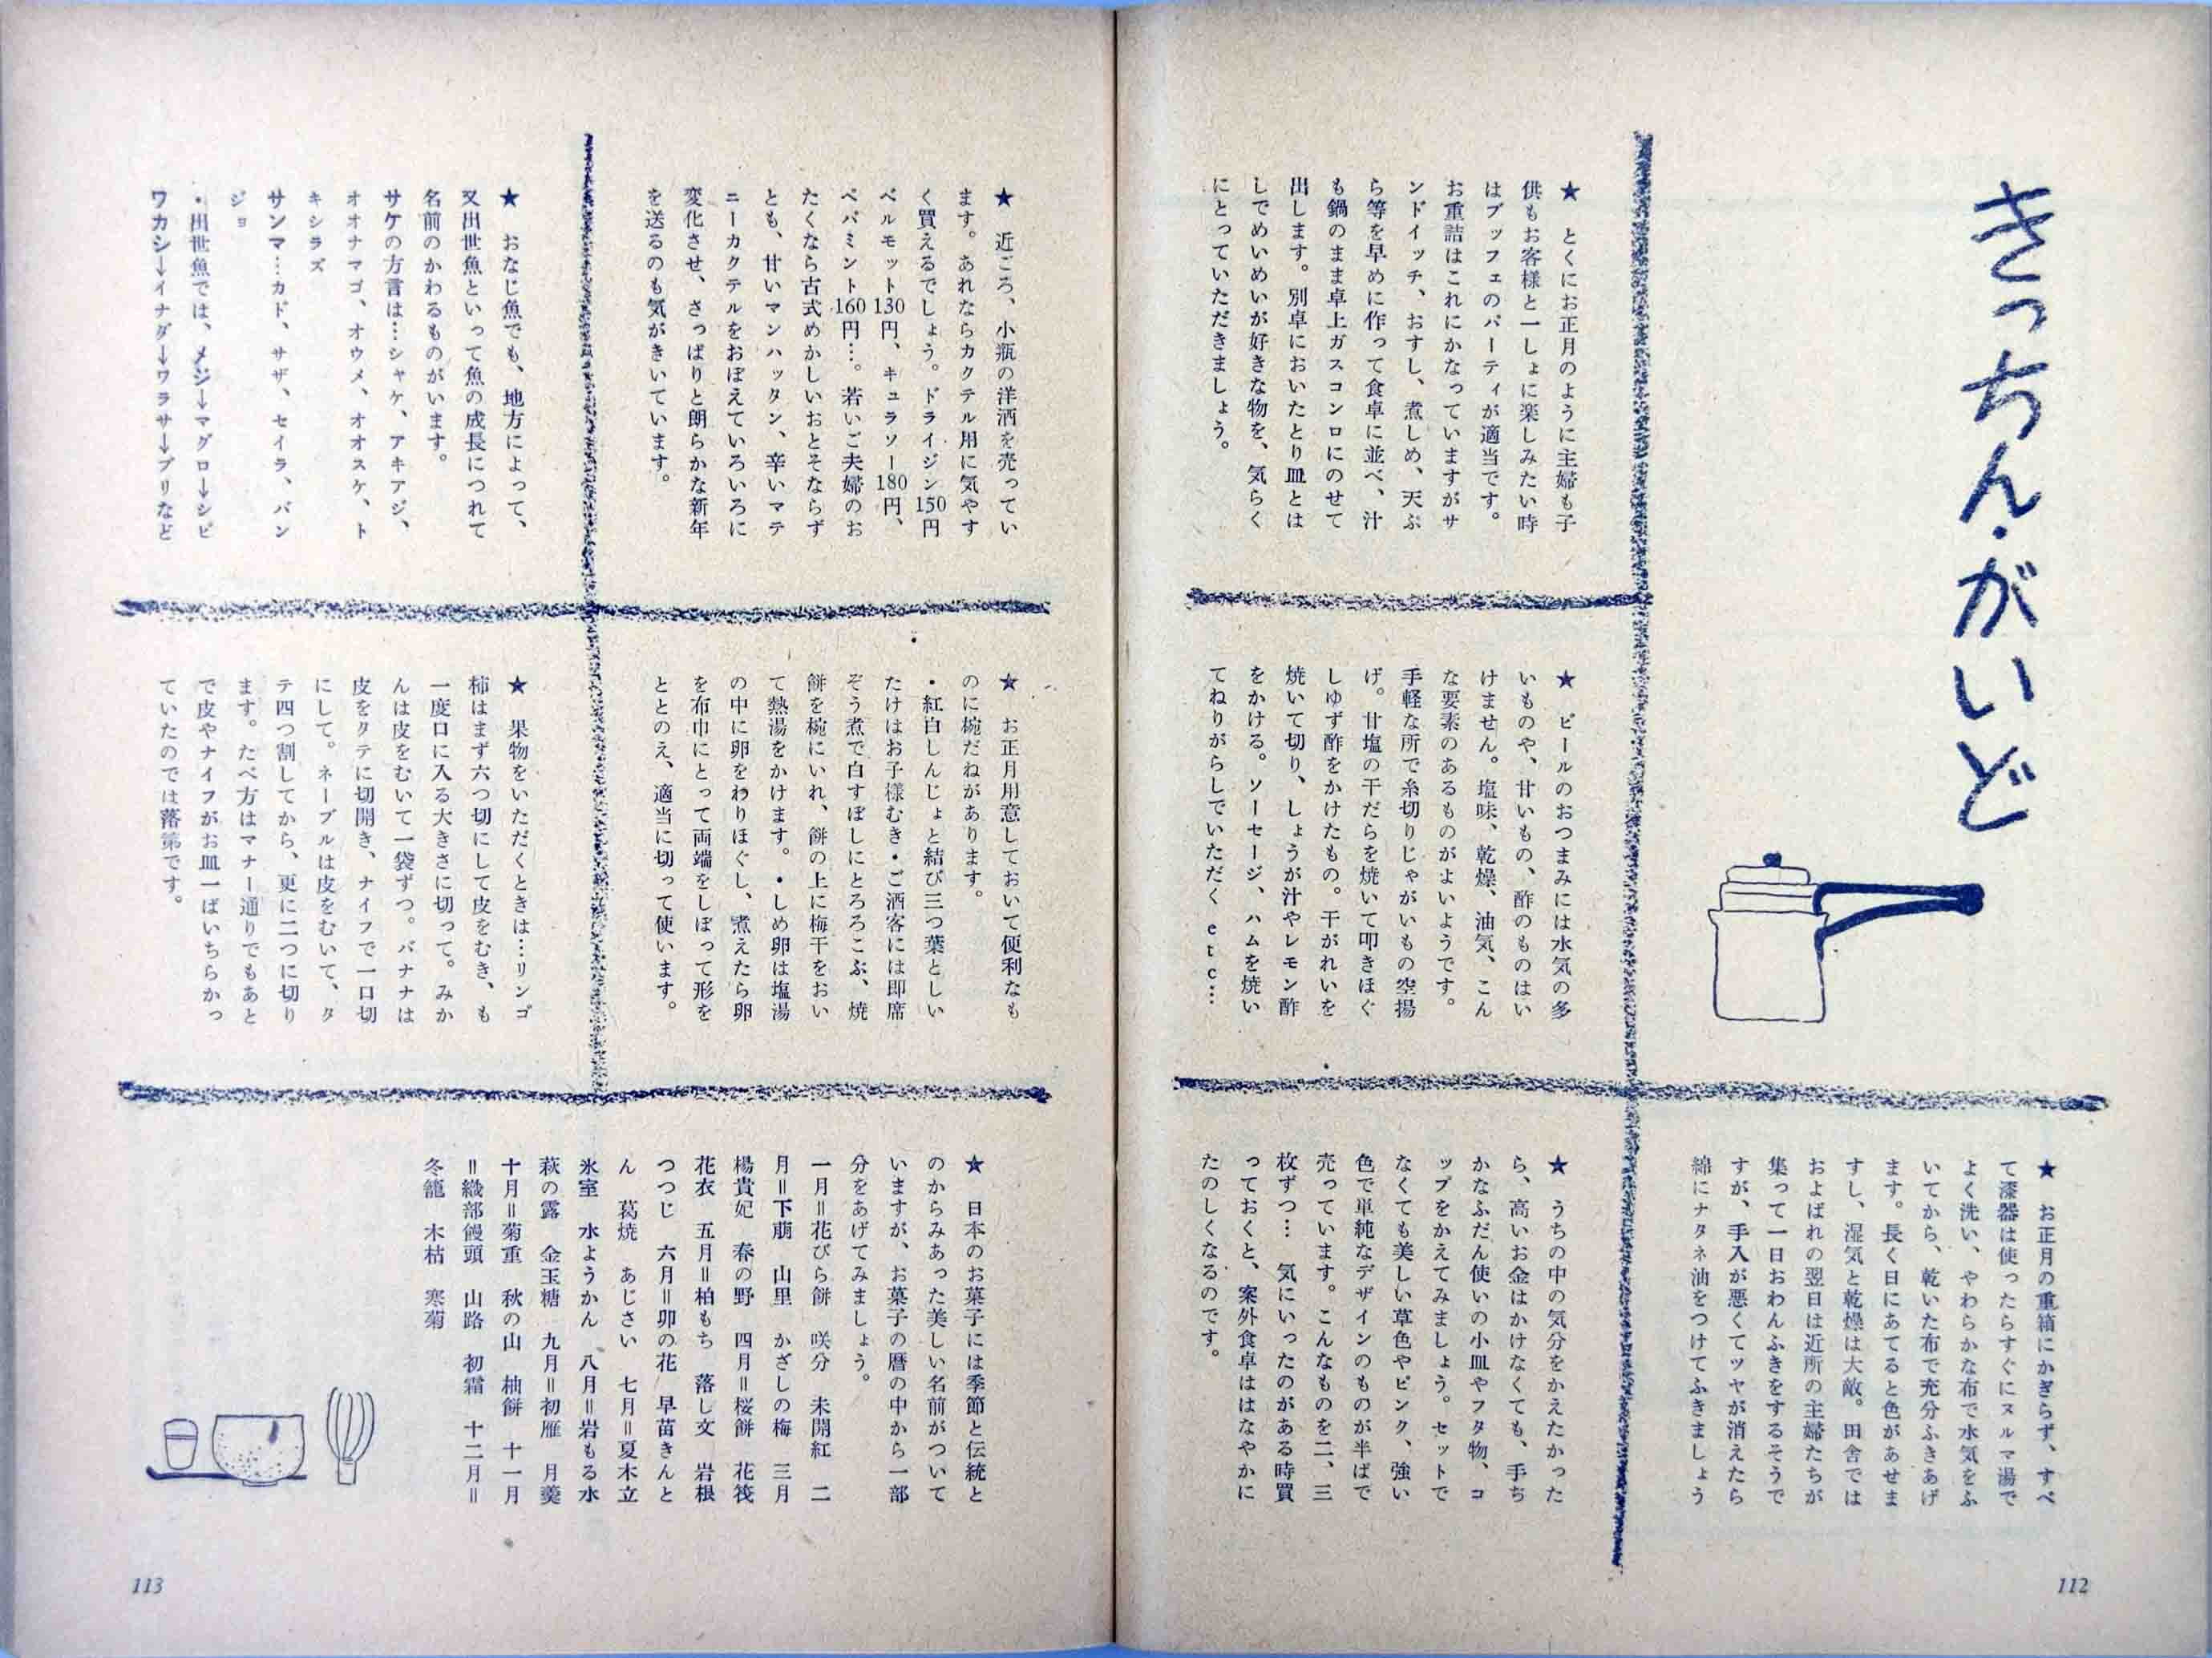 きっちん・がいど
★　とくにお正月のように主婦も子
供もお客様と一しょに楽しみたい時
はブッフェのパーティが適当です。
お重詰はこれにかなっていますがサ
ンドイッチ、おすし、煮しめ、天ぷ
ら等を早めに作って食卓に並べ、汁
も鍋のまま卓上ガスコンロにのせて
出します。別卓においたとり皿とは
しでめいめいが好きな物を、気らく
にとっていただきましょう。
★　ビールのおつまみには水気の多
いものや、甘いもの、酢のものはい
けません。塩味、乾燥、油気、こん
な要素のあるものがよいようです。
手軽な所で糸切りじゃがいもの空揚
げ。甘塩の干だらを焼いて叩きほぐ
しゆず酢をかけたもの。干がれいを
焼いて切り、しょうが汁やレモン酢
をかける。ソーセージ、ハムを焼い
てねりがらしでいただくetc…
★　お正月の重箱にかぎらず、すべ
て漆器は使ったらすぐにヌルマ湯で
よく洗い、やわらかな布で水気をふ
いてから、乾いた布で充分ふきあげ
ます。長く日にあてると色があせま
すし、湿気と乾燥は大敵。田舎では
およばれの翌日は近所の主婦たちが
集って一日おわんふきをするそうで
すが、手入が悪くてツヤが消えたら
綿にナタネ油をつけてふきましょう
★　うちの中の気分をかえたかった
ら、高いお金はかけなくても、手ち
かなふだん使いの小皿やフタ物、コ
ップをかえてみましょう。セットで
なくても美しい草色やピンク、強い
色で単純なデザインのものが半ばで
売っています。こんなものを二、三
枚ずつ…気にいったのがある時買
っておくと、案外食卓ははなやかに
たのしくなるのです。
112
★　近ごろ、小瓶の洋酒を売ってい
ます。あれならカクテル用に気やす
く買えるでしょう。ドライジン150円
ベルモット130円、キュラソー180円、
ペパミント160円…。若いご夫婦のお
たくなら古式めかしいおとそならず
とも、甘いマンハッタン、辛いマテ
ニーカクテルをおぼえていろいろに
変化させ、さっぱりと朗らかな新年
を送るのも気がきいています。
★　おなじ魚でも、地方によって、
又出世魚といって魚の成長につれて
名前のかわるものがいます。
サケの方言は…シャケ、アキアジ、
オオナマゴ、オウメ、オオスケ、ト
キシラズ
サンマ…カド、サザ、セイラ、バン
ジョ
・出世魚では、メジ→マグロ→シビ
ワカシ→イナダ→ワラサ→ブリなど
★　お正月用意しておいて便利なも
のに椀だねがあります。
・紅白しんじょと結び三つ葉としい
たけはお子様むき・ご酒客には即席
ぞう煮で白すぼしにとろろこぶ、焼
餅を椀にいれ、餅の上に梅干をおい
て熱湯をかけます。・しめ卵は塩湯
の中に卵をわりほぐし、煮えたら卵
を布巾にとって両端をしぼって形を
ととのえ、適当に切って使います。
★　果物をいただくときは…リンゴ
柿はまず六つ切にして皮をむき、も
一度口に入る大きさに切って。みか
んは皮をむいて一袋ずつ。バナナは
皮をタテに切開き、ナイフで一口切
にして。ネーブルは皮をむいて、タ
テ四つ割してから、更に二つに切り
ます。たべ方はマナー通りでもあと
で皮やナイフがお皿一ぱいちらかっ
ていたのでは落第です。
★　日本のお菓子には季節と伝統と
のからみあった美しい名前がついて
いますが、お菓子の暦の中から一部
分をあげてみましょう。
一月＝花びら餅　咲分　未開紅　二
月＝下萠　山里　かざしの梅　三月
楊貴妃　春の野　四月＝桜餅　花筏
花衣　五月＝柏もち　落し文　岩根
つつじ　六月＝卯の花　早苗きんと
ん　葛焼　あじさい　七月＝夏木立
氷室　水ようかん　八月＝岩もる水
萩の露　金玉糖　九月＝初雁　月羹
十月＝菊重　秋の山　柚餅　十一月
＝織部饅頭　山路　初霜　十二月＝
冬籠　木枯　寒菊
113